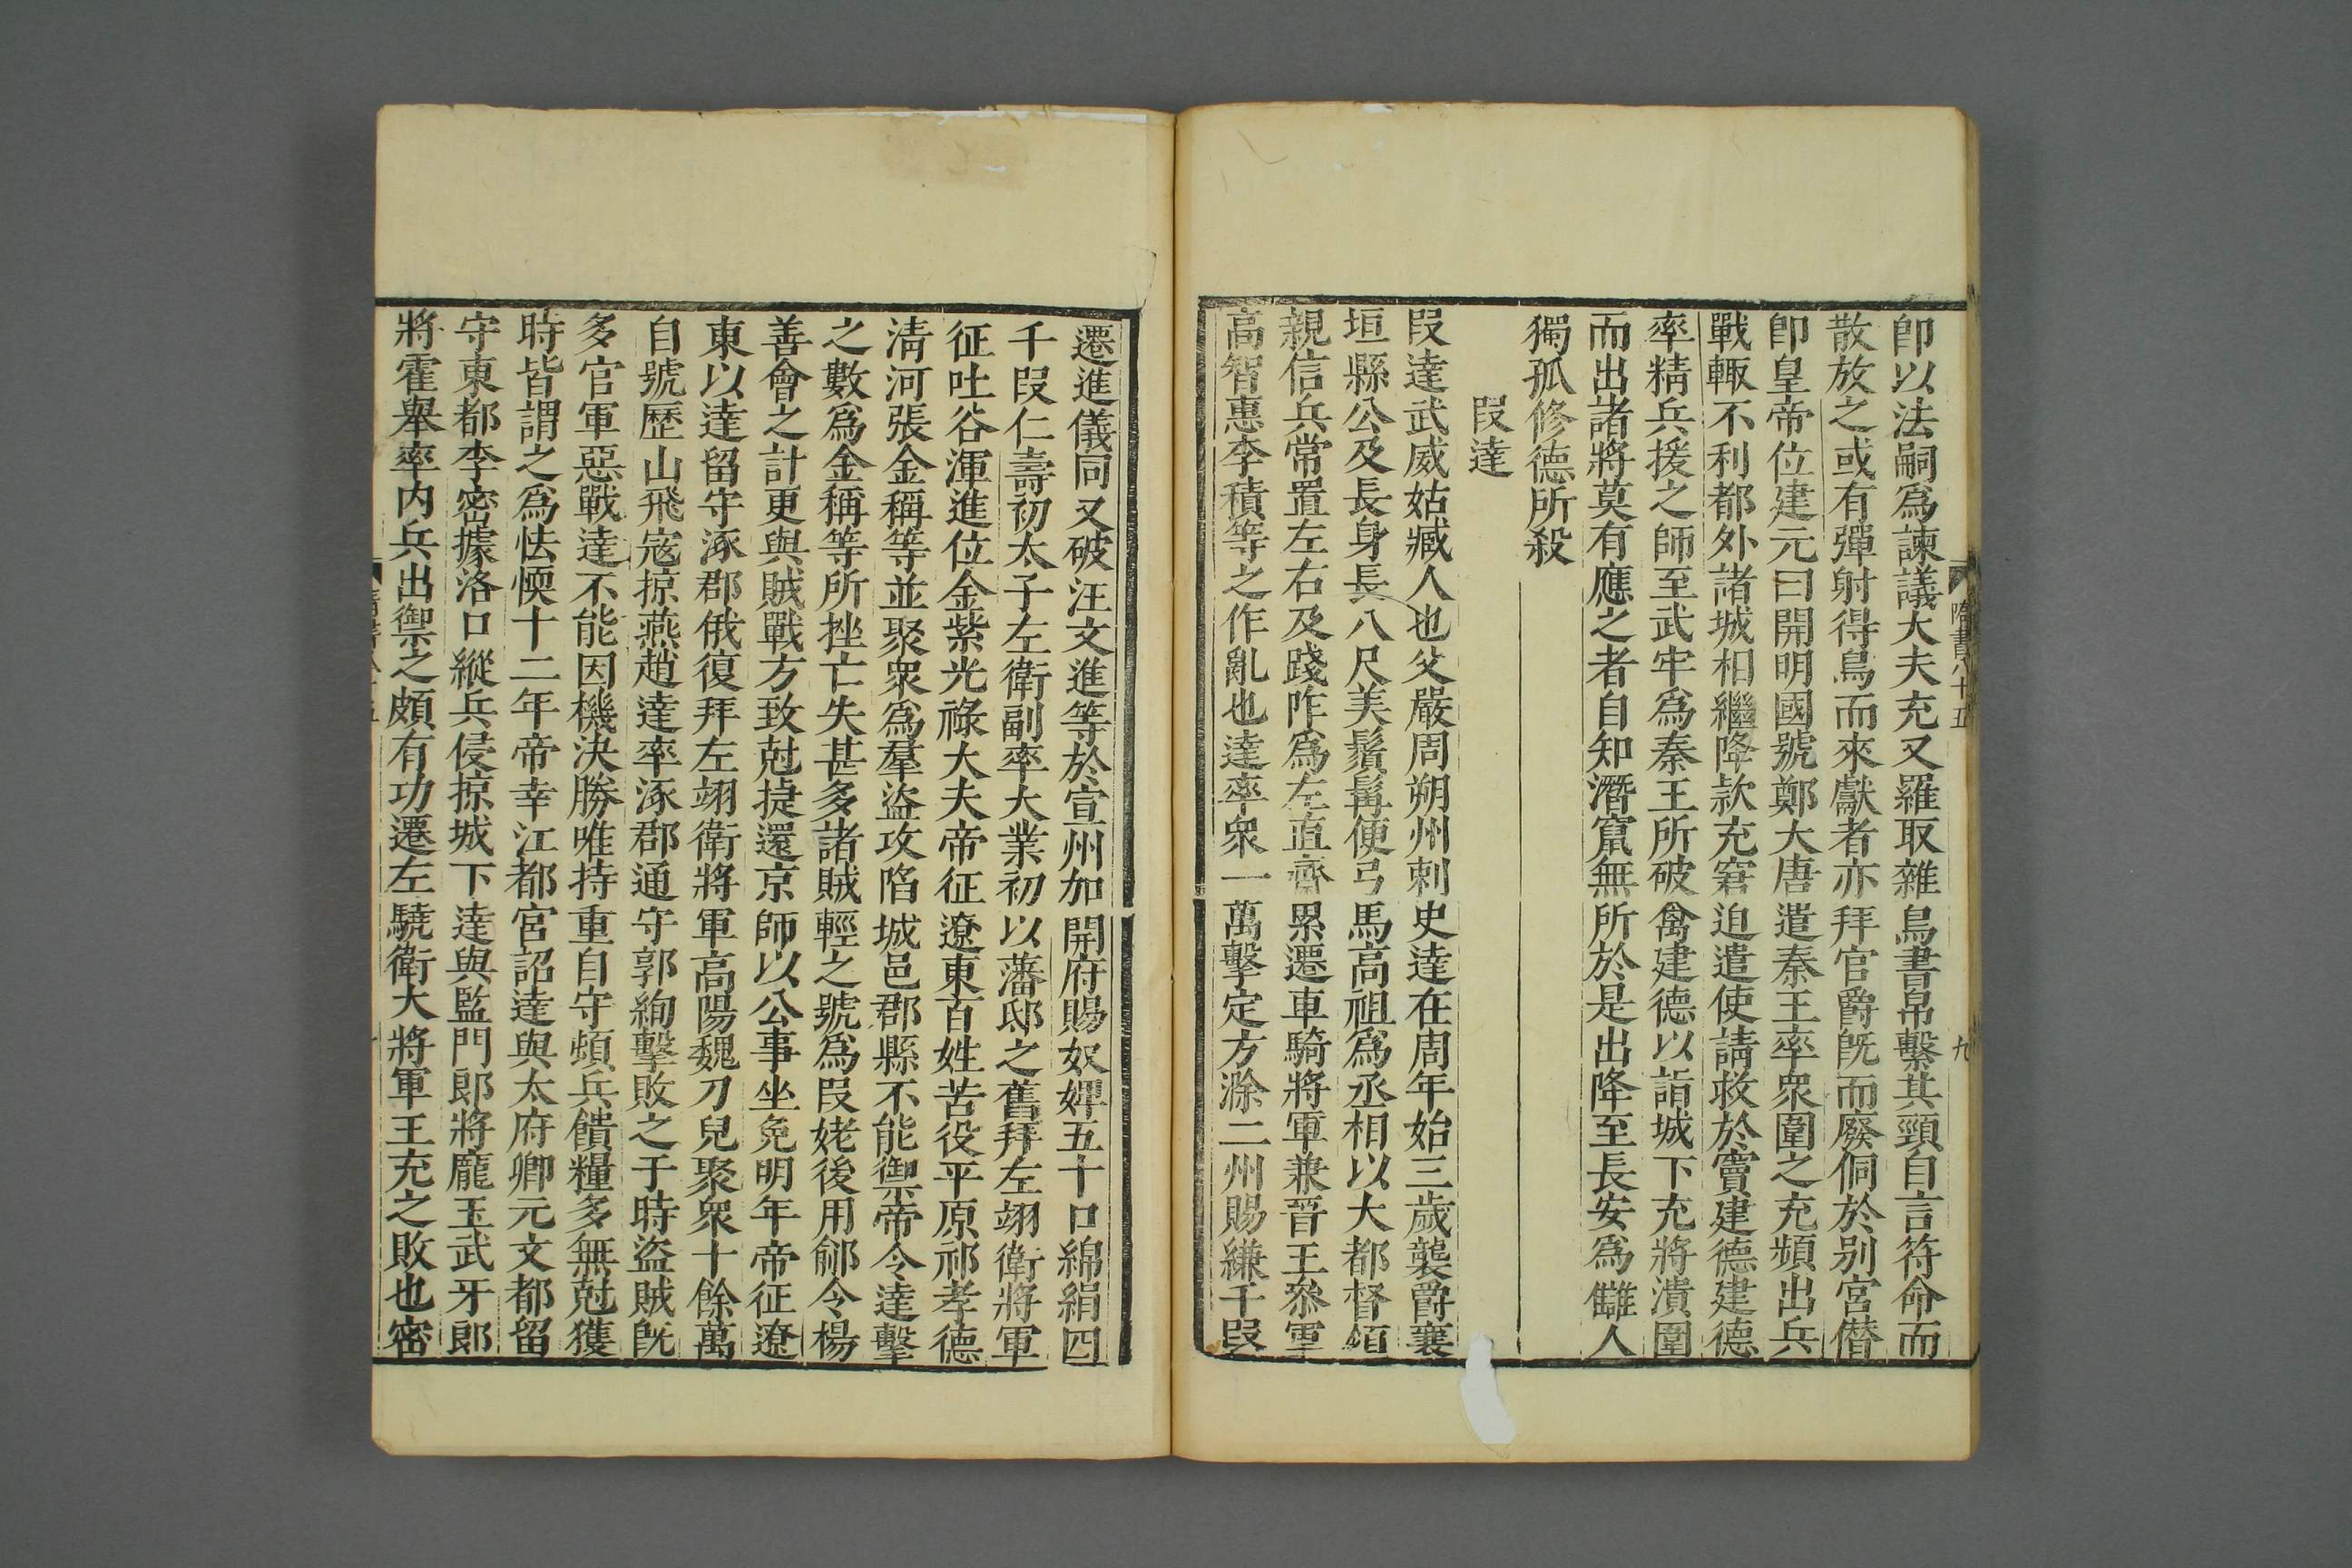 卽以法嗣爲諫議大夫充又羅取雜鳥書帛繫其頸自言符命而
散放之或有彈射得鳥而來獻者亦拜官爵旣而廢侗於別宮僣
卽皇帝位建元曰開明國號鄭大唐遣秦王率衆圍之充頻出兵
戰輙不利都外諸城相繼降款充窘迫遣使請救於竇建德建德
率精兵援之師至武牢爲秦王所破禽建德以詣城下充將潰圍
而出諸將莫有應之者自知潛竄無所於是出降至長安爲讎人
獨孤修德所殺
段達
段達武威姑臧人也父嚴周朔州刺史達在周年始三歲襲爵襄
垣縣公及長身長八尺美鬚髯便弓馬高祖爲丞相以大都督領
親信兵常置左右及踐阼爲左直齋累遷車騎將軍兼晉王叅軍
高智惠李積等之作亂也達率衆一萬擊定方滁二州賜縑千段
隋書八十五
九
遷進儀同又破汪文進等於宣州加開府賜奴婢五十口綿絹四
千段仁壽初太子左衞副率大業初以藩邸之舊拜左翊衞將軍
征吐谷渾進位金紫光祿大夫帝征遼東百姓苦役平原祁孝德
淸河張金稱等並聚衆爲羣盜攻陷城邑郡縣不能禦帝令達擊
之數爲金稱等所挫亡失甚多諸賊輕之號爲段姥後用鄃令楊
善會之計更與賊戰方致尅捷還京師以公事坐免明年帝征遼
東以達留守涿郡俄復拜左翊衞將軍高陽魏刀兒聚衆十餘萬
自號歷山飛寇掠燕趙達率涿郡通守郭絢擊敗之于時盜賊旣
多官軍惡戰達不能因機決勝唯持重自守頓兵饋糧多無尅獲
時皆謂之爲怯愞十二年帝幸江都宮詔達與太府卿元文都留
守東都李密據洛口縱兵侵掠城下達與監門郎將龐玉武牙郎
將霍舉率內兵出禦之頗有功遷左驍衞大將軍王充之敗也密